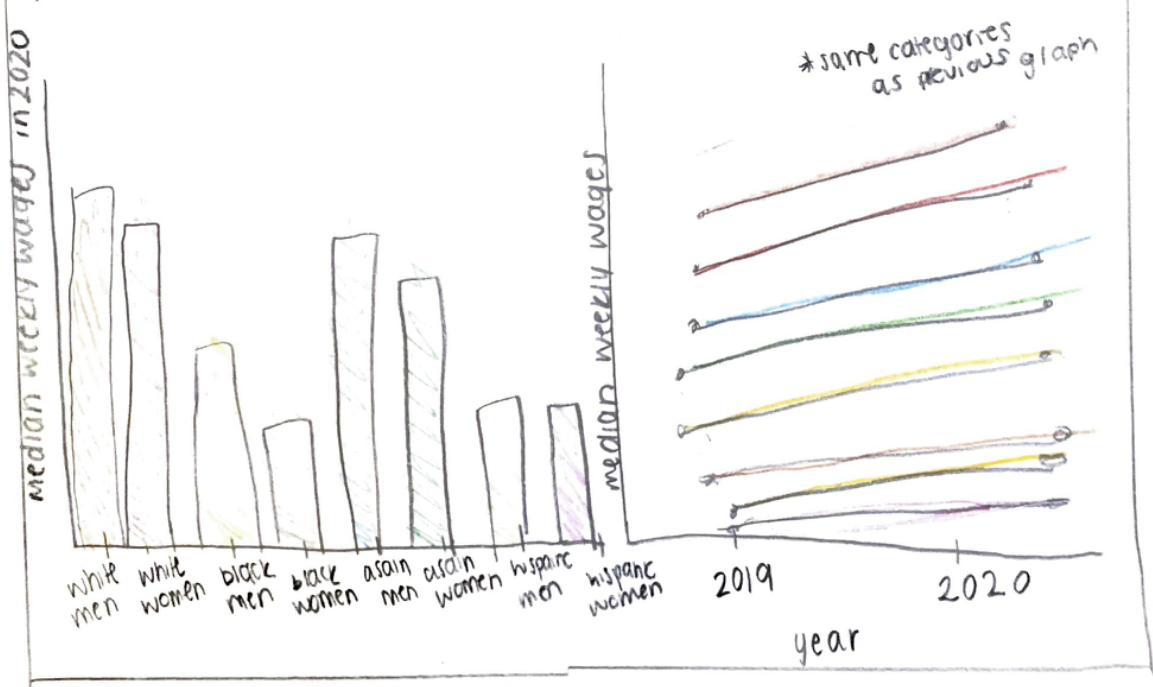 median weekly wages in 2020
white
men
white
women
black
men
black
women
asain
men
asain
women
hispanic
men
hispanic
women
*same categories
as previous graph
median weekly wages
2019
2020
year